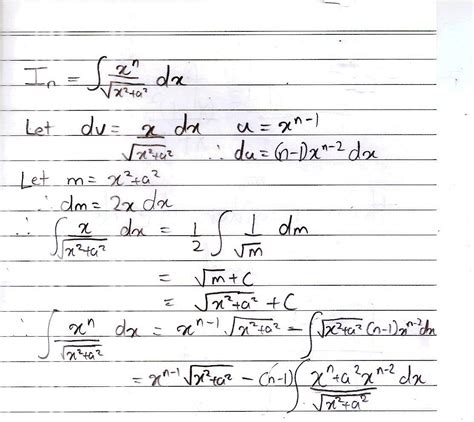 Iₙ = ∫ xⁿ/√(x²+a²) dx
Let dv = x/√(x²+a²) dx u = xⁿ⁻¹
∴ du = (n-1)xⁿ⁻² dx
Let m = x²+a²
∴ dm = 2x dx
∴ ∫ x/√(x²+a²) dx = 1/2 ∫ 1/√m dm
= √m + C
= √(x²+a²) + C
∴ ∫ xⁿ/√(x²+a²) dx = xⁿ⁻¹ √(x²+a²) - ∫ √(x²+a²) (n-1)xⁿ⁻² dx
= xⁿ⁻¹ √(x²+a²) - (n-1) ∫ (xⁿ+a²xⁿ⁻²)/√(x²+a²) dx